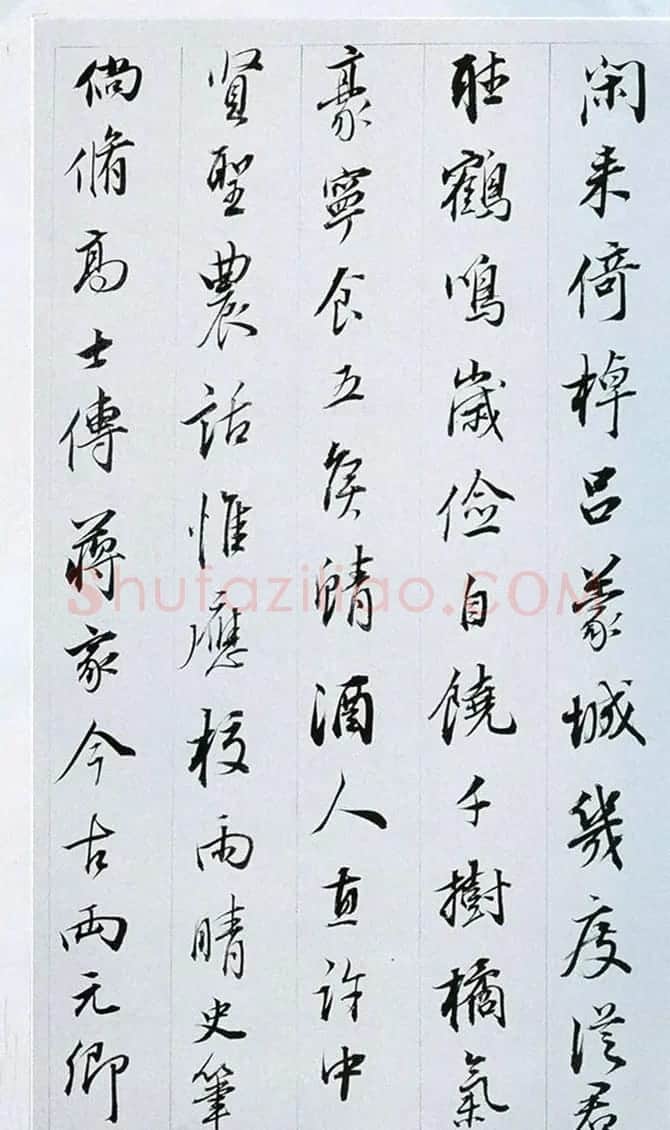 閑来倚棹呂蒙城幾度從君
聽鶴鳴歲儉自饒千樹橘氣
豪寧食五侯鯖酒人直許中
賢聖農話惟應校雨晴史筆
倘脩高士傳蔣家今古兩元卿
Shufaziliao.COM